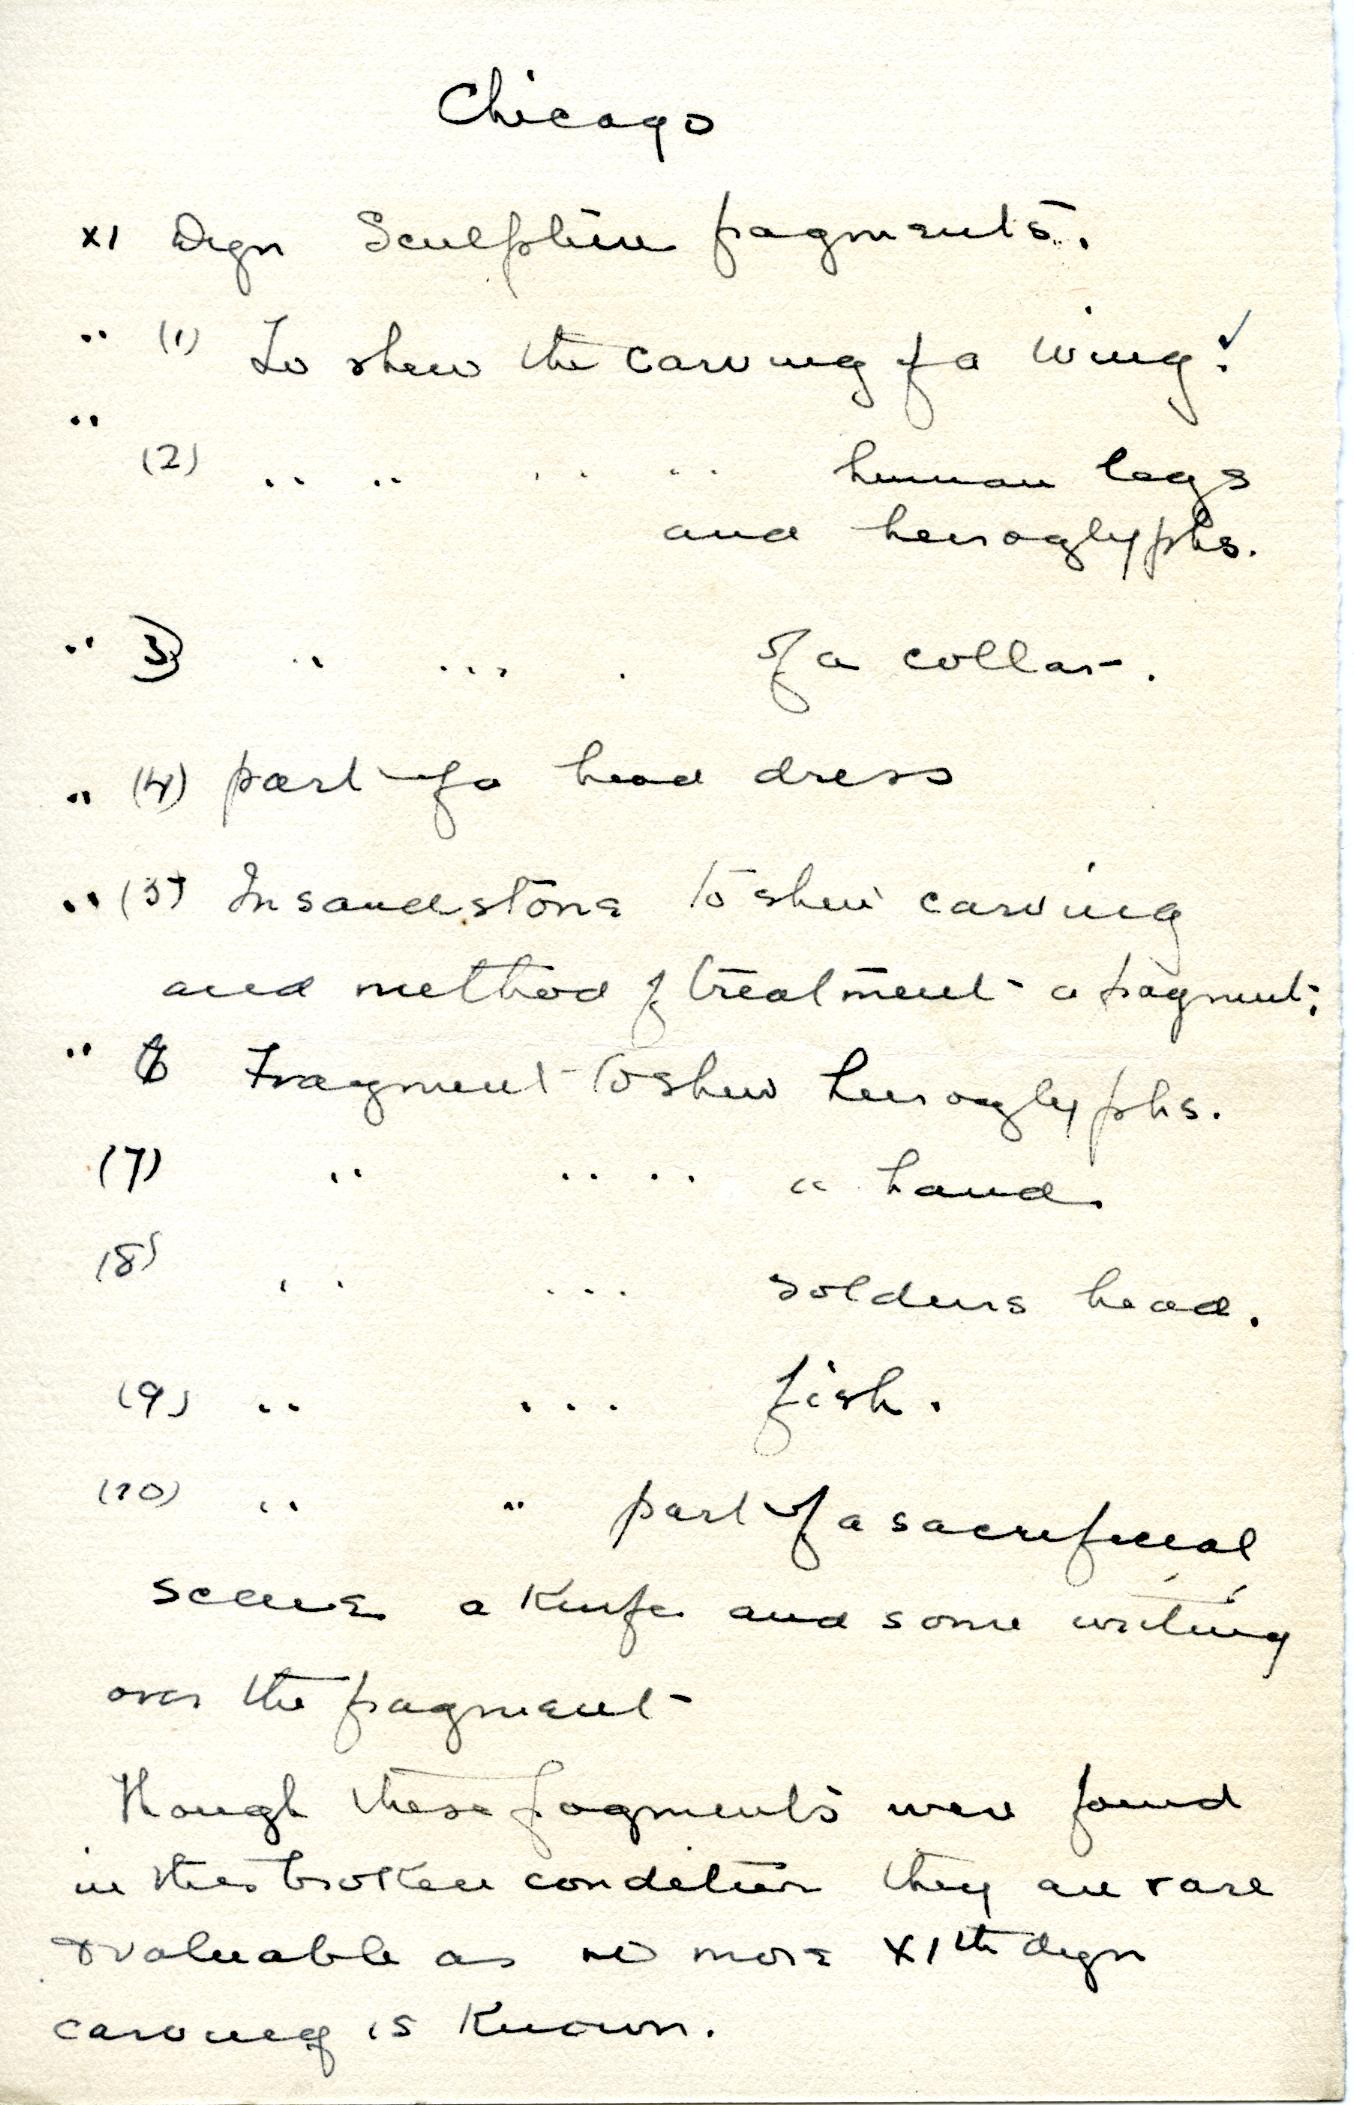 Chicago
XI Dyn Sculpture fragments.
" (1) To shew the carving of a wing.
"
(2) " " " " human legs
and heiroglyphs.
" 3) " " " of a collar.
" (4) part of a head dress
" (5) In sandstone to shew carving
and method of treatment a fragment.
" 6 Fragment to shew heiroglyphs.
(7) " " " a hand.
(8) " " soldiers head.
(9) " " fish.
(10) " " part of a sacrificial
scene a Knife and some writing
over the fragment
Though these fragments were found
in this broken condition they are rare
& valuable as no more XIth dyn
carving is Known.